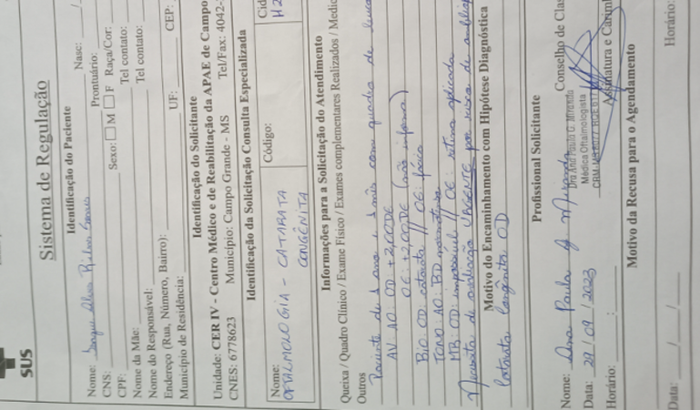 SUS
Sistema de Regulação
Identificação do Paciente
Nome: Nasc: /
CNS: Prontuário:
CPF: Sexo: M F Raça/Cor:
Nome da Mãe: Tel contato:
Nome do Responsável: Tel contato:
Endereço (Rua, Número, Bairro):
Município de Residência: UF: CEP:
Identificação do Solicitante
Unidade: CER IV - Centro Médico e de Reabilitação da APAE de Campo
CNES: 6778623 Município: Campo Grande - MS Tel/Fax: 4042-
Identificação da Solicitação Consulta Especializada
Nome: Código: Cid
OFTALMOLOGIA - CATARATA H2
CONGÊNITA
Informações para a Solicitação do Atendimento
Queixa / Quadro Clínico / Exame Físico / Exames complementares Realizados / Medic
Outros
Paciente de 1 ano e 1 mês com quadro de
AV AO OD +2,00DE
OE: +2,00DE (não informa)
BIO OD catarata // OE: fácico
TONO AO: BD
MR OD impossível // OE: retina aplicada
Necessita de avaliação URGENTE por risco de
Motivo do Encaminhamento com Hipótese Diagnóstica
Catarata Congênita OD
Profissional Solicitante
Nome: Ana Paula Miranda Conselho de Clas
Dra Ana Paula D. Miranda
Médica Oftalmologista
Data: 29/09/2023
Horário: : Assinatura e Carimb
Motivo da Recusa para o Agendamento
Data: / / Horário: